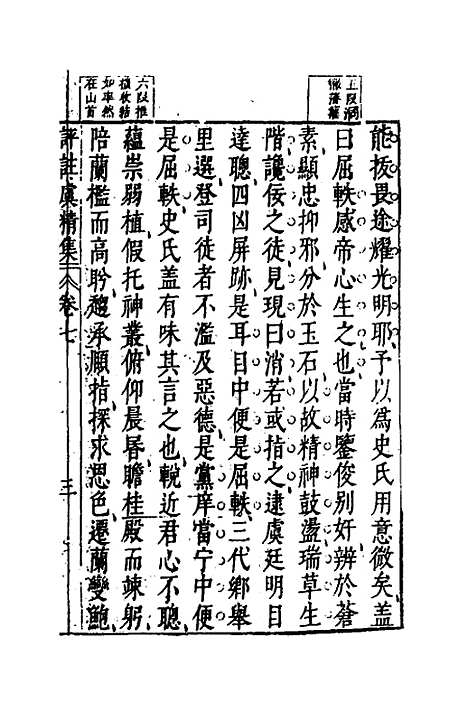 五段洞
六段推
在山首
能扳畏途耀光明耶予以為史氏用意微矣蓋
曰屈軼感帝心生之也當時鑒俊别奸辨於蒼
素顯忠抑邪分於玉石以故精神鼓盪瑞草生
階讒佞之徒見現曰消若或指之逮虞廷明目
達聰四凶屏跡是耳目中便是屈軼三代鄉舉
里選登司徒者不濫及惡德是黨庠當宁中便
是屈軼史氏盖有味其言之也輓近君心不聰
蘊崇弱植假托神叢俯仰晨昏瞻桂殿而竦躬
陪蘭檻而高聆䂓承願指探求思色遷蘭變鮑
評註虞精集 卷七 三